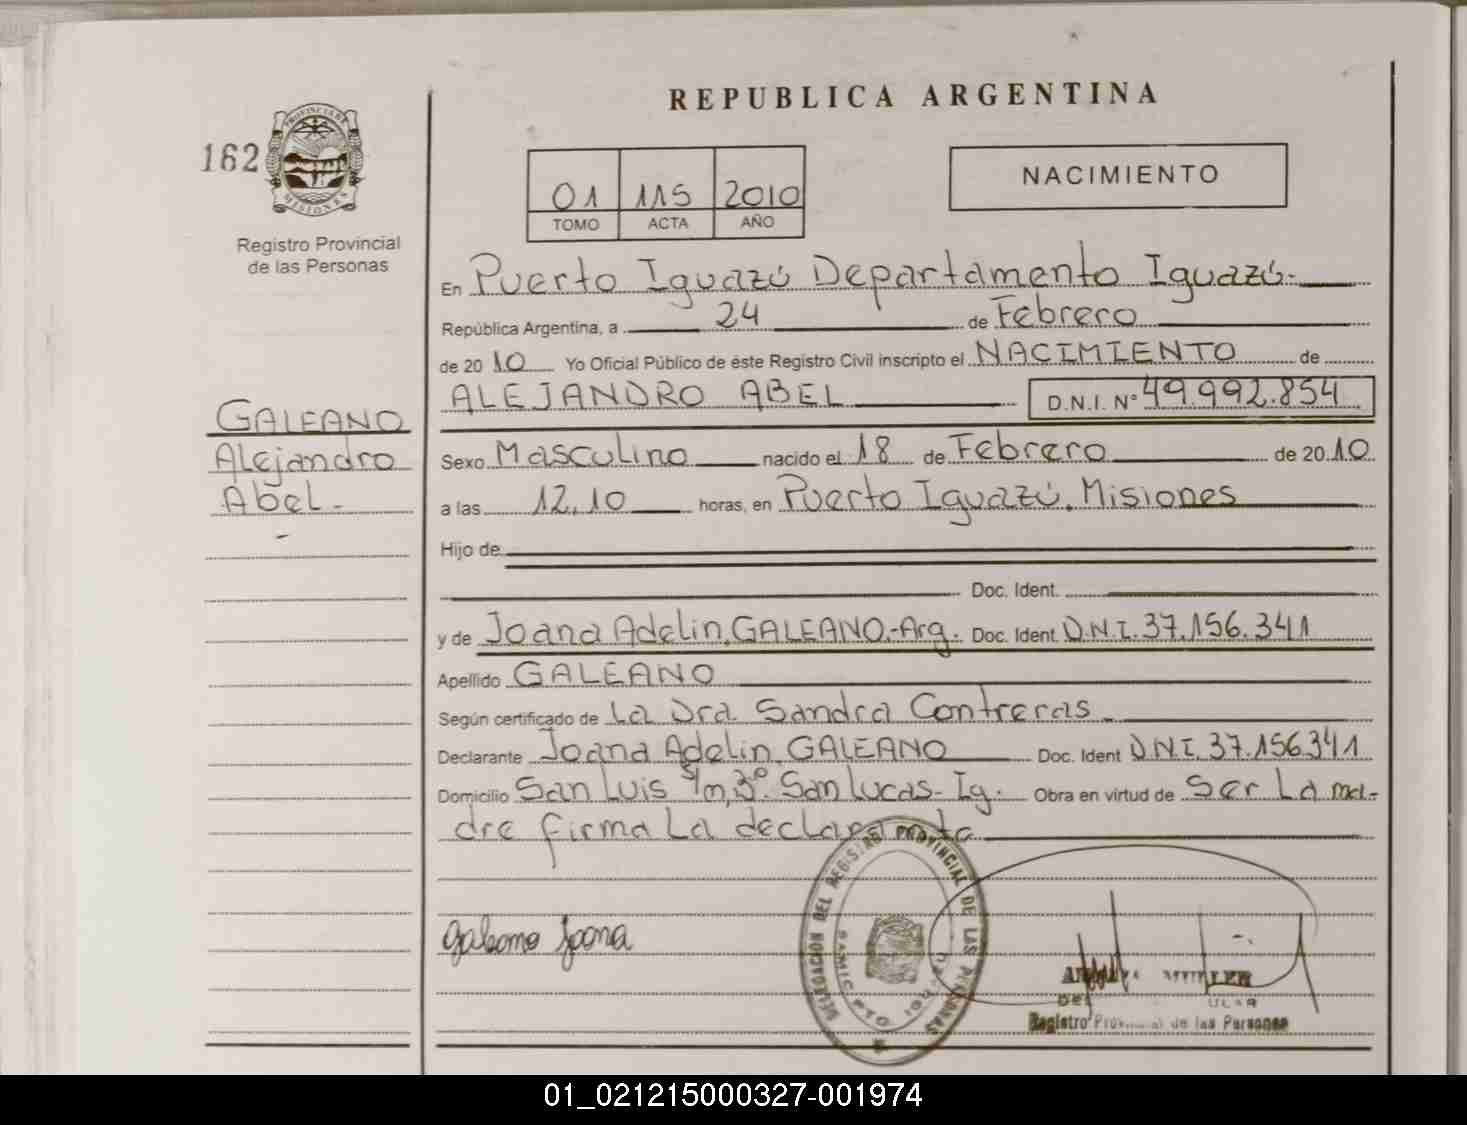 REPUBLICA ARGENTINA
162
PROVINCIA DE
MISIONES
Registro Provincial
de las Personas
01 115 2010
TOMO ACTA AÑO
NACIMIENTO
En Puerto Iguazú Departamento Iguazú.-
República Argentina, a 24 de Febrero
de 2010 Yo Oficial Público de éste Registro Civil inscripto el NACIMIENTO de
ALEJANDRO ABEL D.N.I. N° 49.992.854
GALEANO
Alejandro
Abel.-
-
Sexo Masculino nacido el 18 de Febrero de 2010
a las 12,10 horas, en Puerto Iguazú. Misiones
Hijo de
Doc. Ident.
y de Joana Adelin, GALEANO.-Arg. Doc. Ident. D.N.I. 37.156.341
Apellido GALEANO
Según certificado de La Dra. Sandra Contreras.
Declarante Joana Adelin, GALEANO Doc. Ident D.N.I. 37.156.341
Domicilio San Luis s/m, 3° San Lucas- Ig. Obra en virtud de Ser La ma-
dre firma La declarante
Galeano Joana
DELEGACION DEL REGISTRO PROVINCIAL DE LAS PERSONAS
Registro Provincial de las Personas
01_021215000327-001974